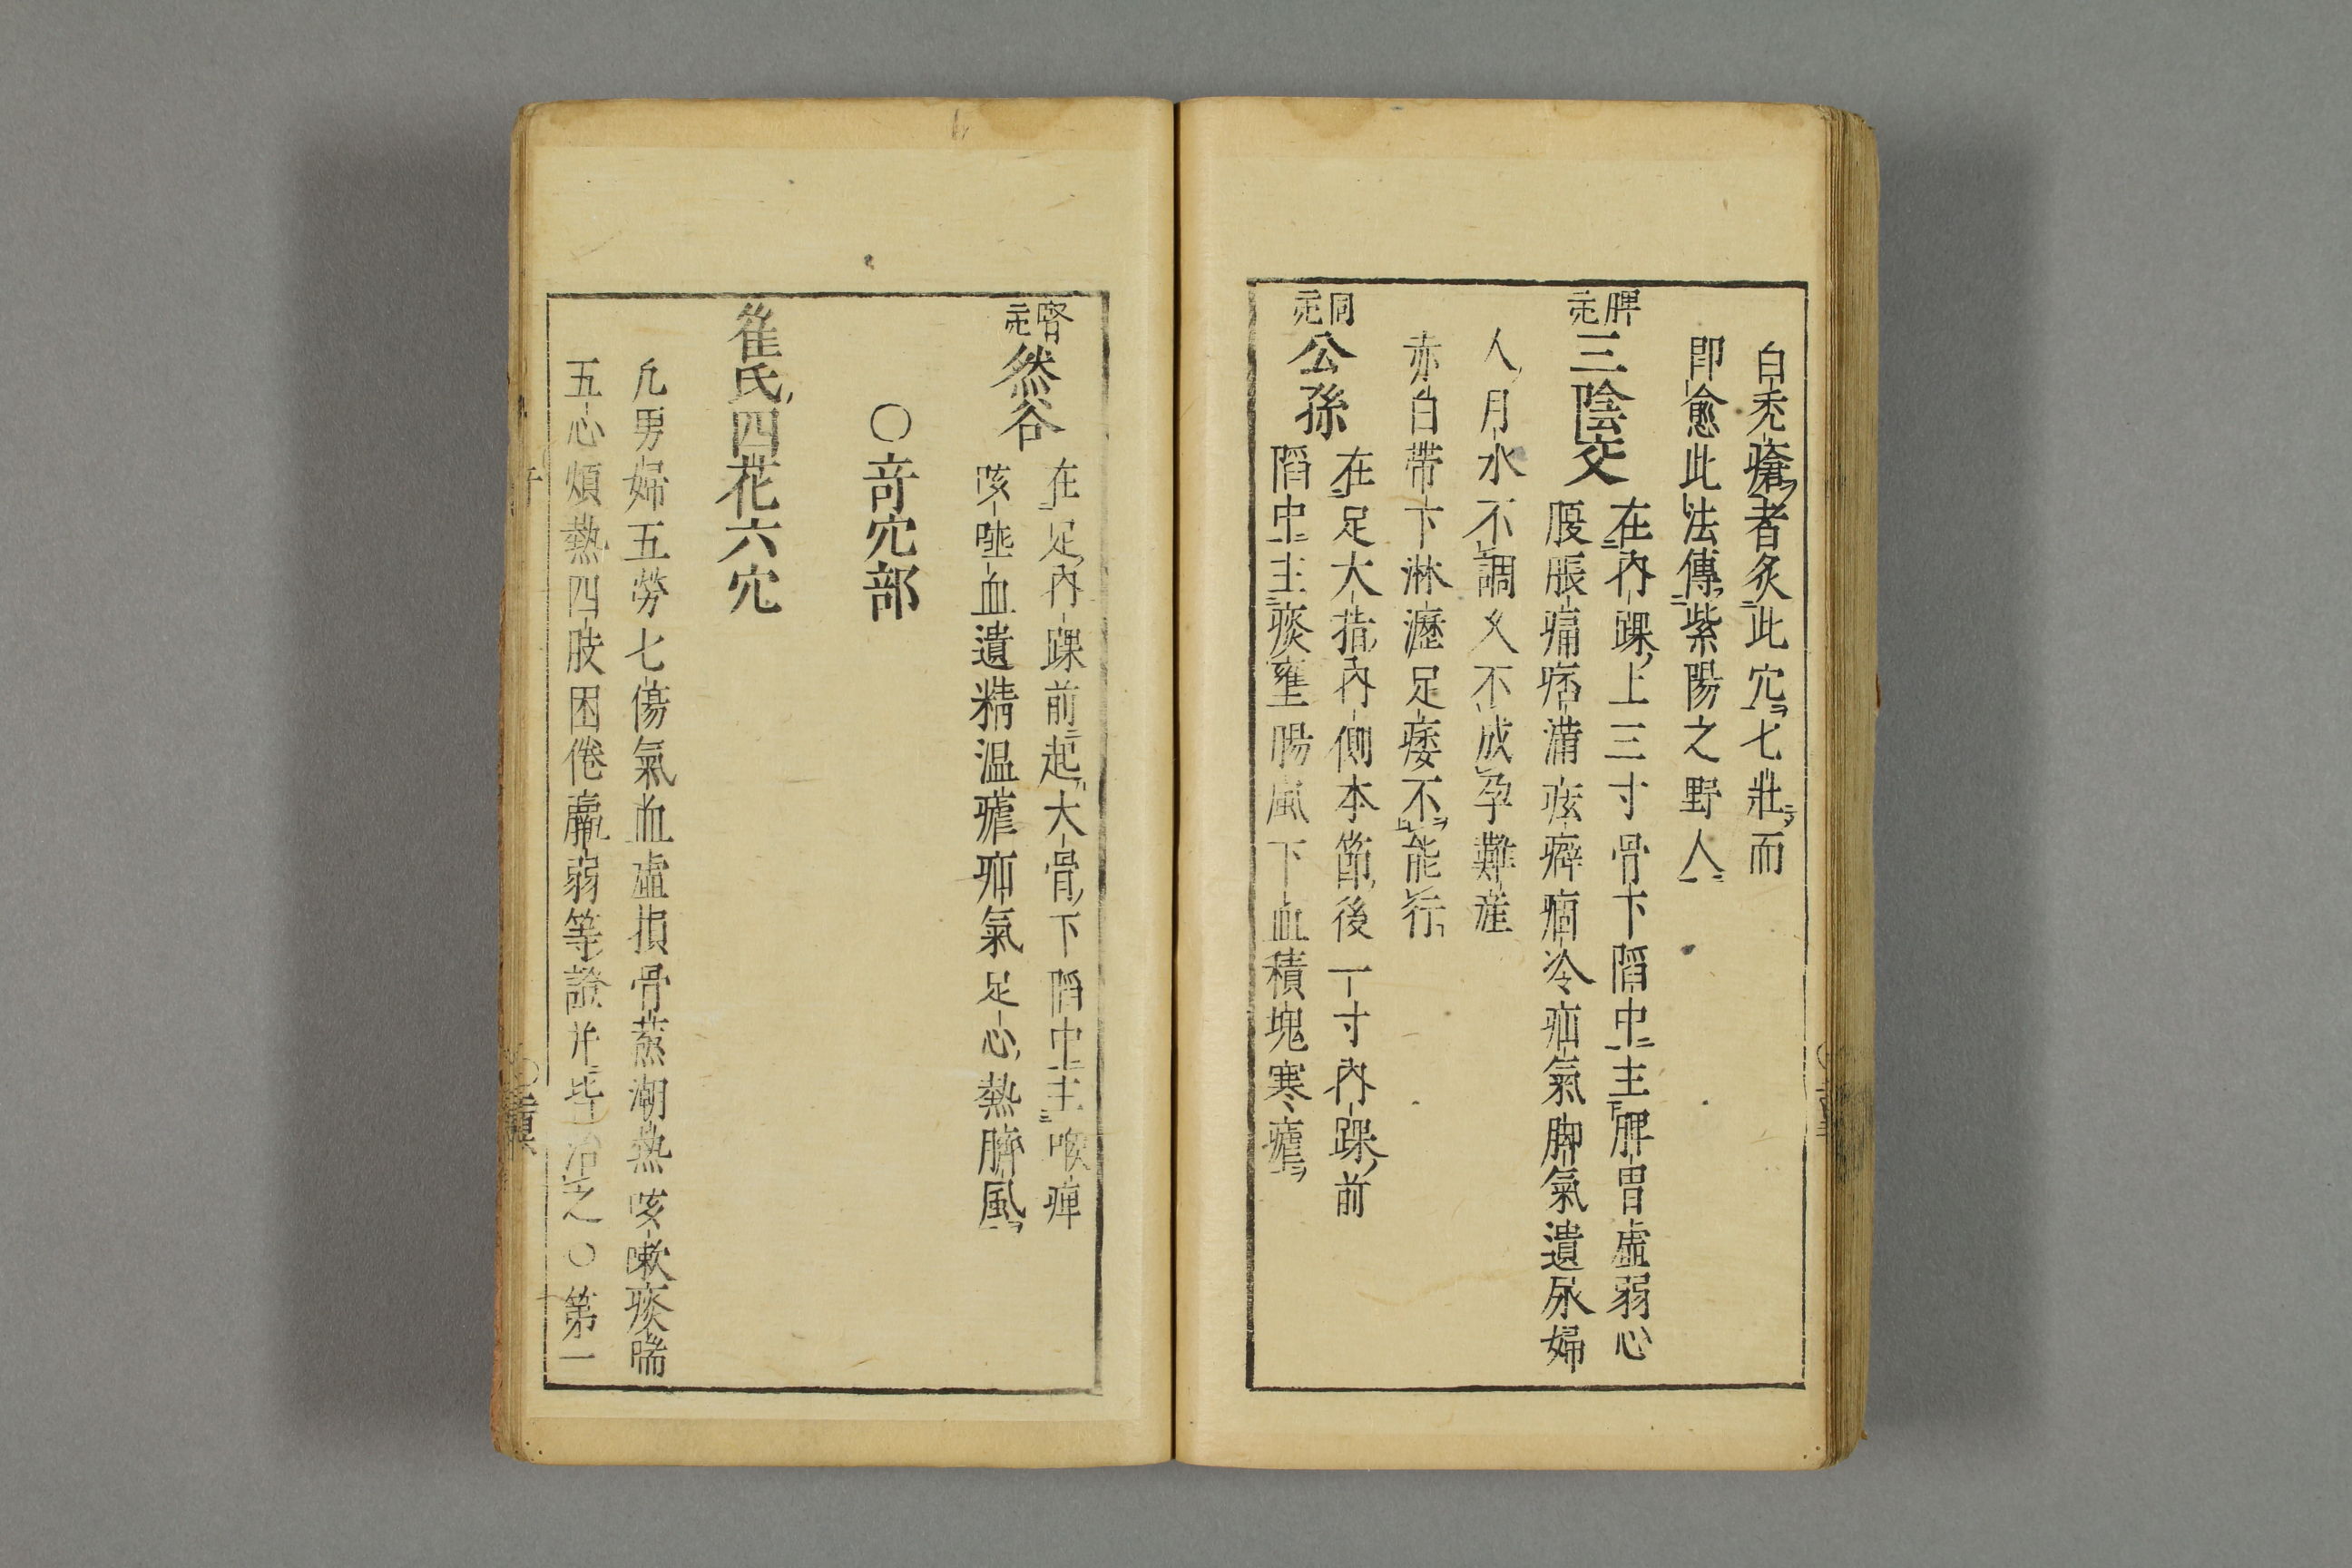 白禿瘡者灸此穴七壯而
即愈此法傳紫陽之野人
脾
三陰交
在內踝上三寸骨下陷中主脾胃虛弱心
腹脹痛痞滿痃癖痼冷疝氣脚氣遺尿婦
人月水不調久不成孕難産
赤白帶下淋瀝足痿不能行
同
公孫
在足大指內側本節後一寸內踝前
陷中主痰壅腸風下血積塊寒瘧
腎
然谷
在足內踝前起大骨下陷中主喉痺
咳唾血遺精温瘧疝氣足心熱臍風
○竒穴部
崔氏四花六穴
凡男婦五勞七傷氣血虛損骨蒸潮熱咳嗽痰喘
五心煩熱四肢困倦羸弱等證并皆治之○第一